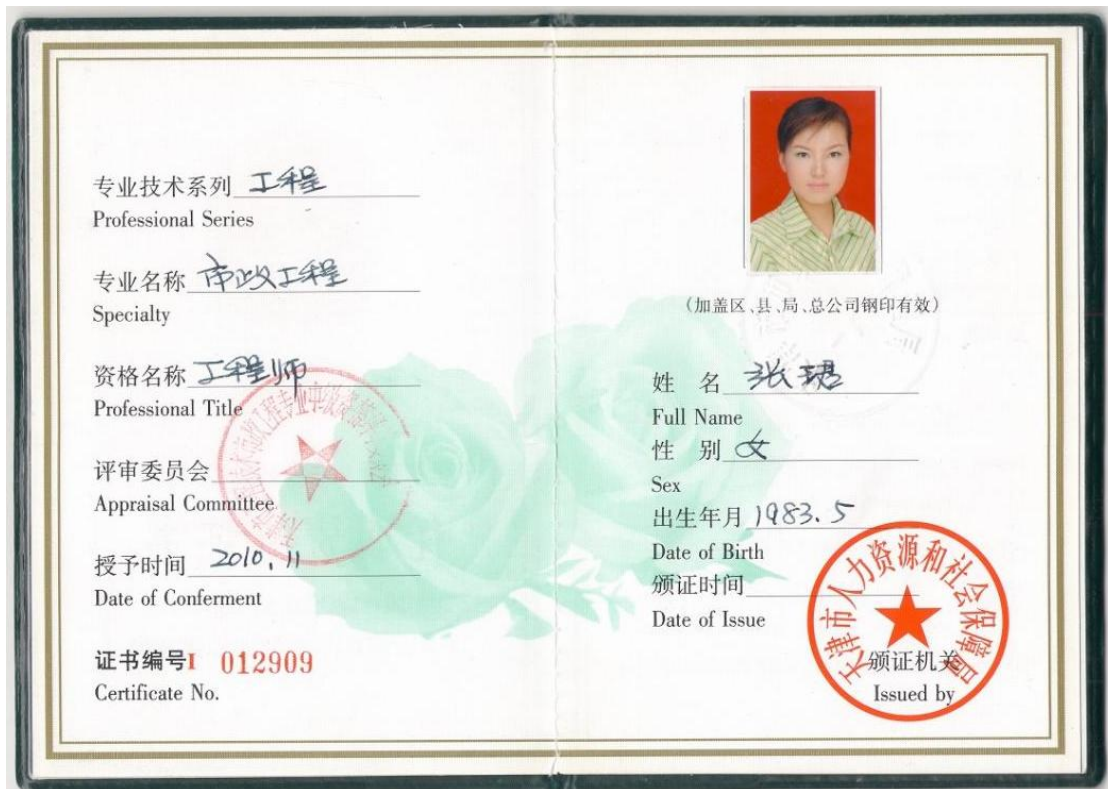 专业技术系列 工程
Professional Series
专业名称 市政工程
Specialty
资格名称 工程师
Professional Title
评审委员会
Appraisal Committee
授予时间 2010.11
Date of Conferment
证书编号I 012909
Certificate No.
(加盖区、县、局、总公司钢印有效)
姓 名 张珺
Full Name
性 别 女
Sex
出生年月 1983.5
Date of Birth
颁证时间
Date of Issue
天津市人力资源和社会保障局
颁证机关
Issued by